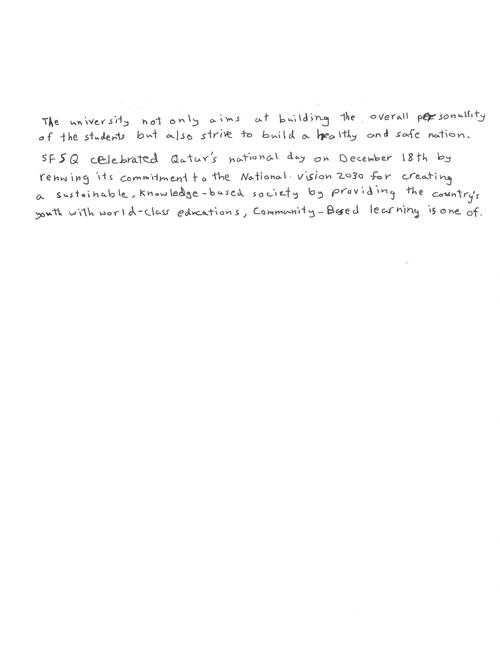 The university not only aims at building the overall personallity
of the students but also strive to build a healthy and safe nation.
SFSQ celebrated Qatar's national day on December 18th by
renwing its commitment to the National. vision 2030 for creating
a sustainable, knowledge-based society by providing the country's
youth with world-class educations, Community-Based learning is one of.